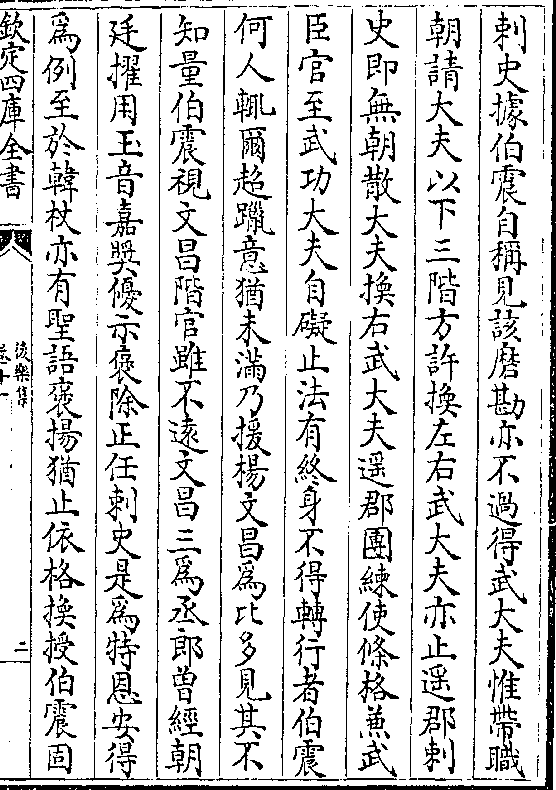 刺史據伯震自稱見該磨勘亦不過得武大夫惟帶職
朝請大夫以下三階方許換左右武大夫亦止遥郡刺
史即無朝散大夫換右武大夫遥郡團練使條格兼武
臣官至武功大夫自礙止法有終身不得轉行者伯震
何人輒爾超躐意猶未滿乃援楊文昌為比多見其不
知量伯震視文昌階官雖不遠文昌三為丞郎曾經朝
廷擢用玉音嘉奬優示褒除正任刺史是為特恩安得
為例至於韓杖亦有聖語褒揚猶止依格換授伯震固
欽定四庫全書
後樂集
卷十一
二